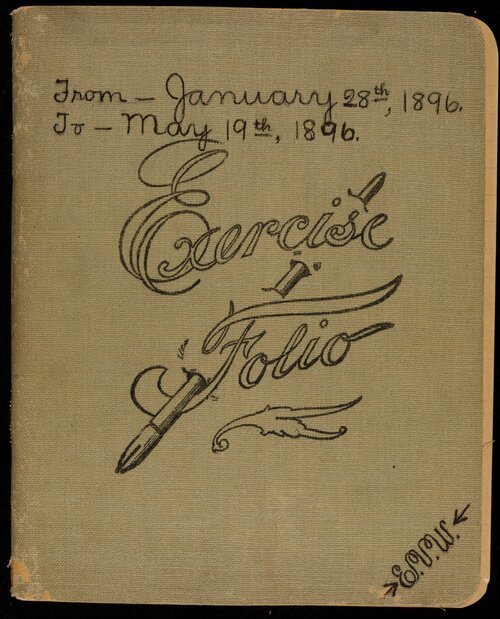 From – January 28th, 1896.
To – May 19th, 1896.
Exercise
Folio